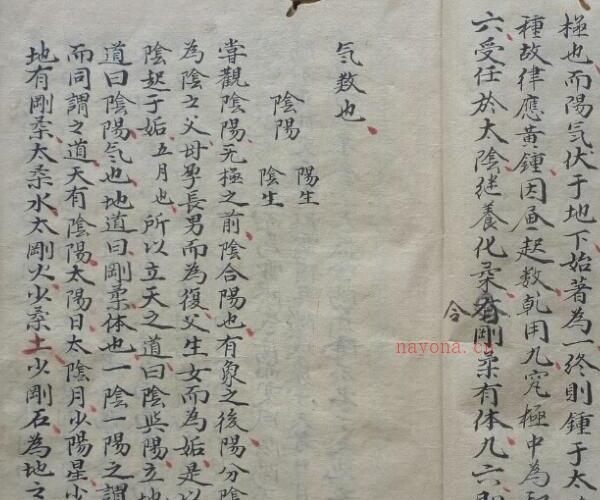 極也而陽气伏于地下始著為一終則鍾于太
種故律應黃鍾因
起數乾用九究極中為
六受任於太陰继養化柔
合
剛柔有体九六
气数也
陰陽
陽生
陰生
嘗觀陰陽无極之前陰合陽也有象之後陽分陰
為陰之父母孕長男而為復父生女而為姤是以
陰起于姤五月也所以立天之道曰陰與陽立地
道曰陰陽气也地道曰剛柔体也一陰一陽之謂
而同謂之道天有陰陽太陽日太陰月少陽星少
地有剛柔太柔水太剛火少柔土少剛石為地之
nayona.cn